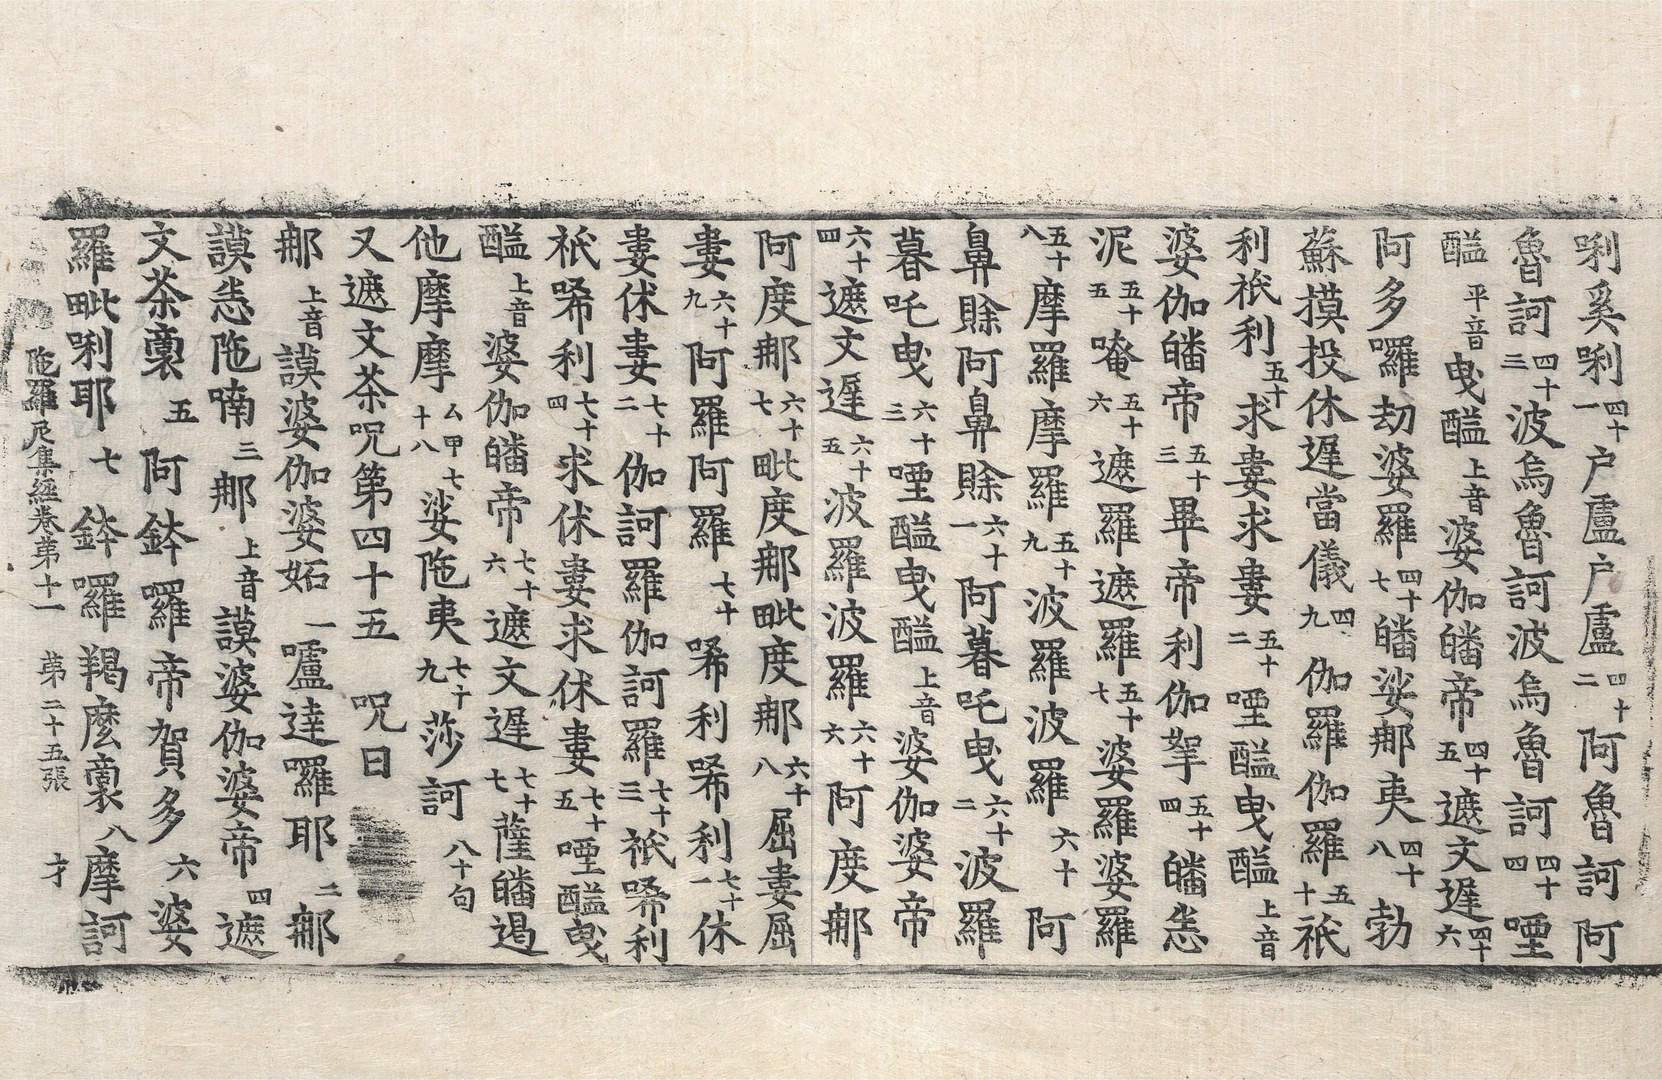 唎奚唎四十一户盧户盧四十二阿魯訶阿
魯訶四十三波烏魯訶波烏魯訶四十四堙
醯平音曳醯上音婆伽皤帝四十五遮文遲四十六
阿多囉劫婆羅四十七皤娑那夷四十八勃
蘇摸投休遲當儀四九伽羅伽羅五十祇
利祇利五十求婁求婁五十二堙醯曳醯上音
婆伽皤帝五十三畢帝利伽拏五十四皤恙
泥五十五唵五十六遮羅遮羅五十七婆羅婆羅
五十八摩羅摩羅五十九波羅波羅六十阿
鼻賖阿鼻賖六十一阿暮吒曳六十二波羅
暮吒曳六十三堙醯曳醯上音婆伽婆帝
六十四遮文遲六十五波羅波羅六十六阿度那
阿度那六十七毗度那毗度那六十八屈婁屈
婁六十九阿羅阿羅七十唏利唏利七十一休
婁休婁七十二伽訶羅伽訶羅七十三祇唏利
祇唏利七十四求休婁求休婁七十五堙醯曳
醯上音婆伽皤帝七十六遮文遲七十七薩皤遏
他摩摩厶甲七十八娑陁夷七十九莎訶八十句
又遮文荼呪第四十五 呪曰
那上音謨婆伽婆妬一嚧達囉耶二那
謨恙陁喃三那上音謨婆伽婆帝四遮
文荼㐮五阿鉢羅帝賀多六婆
羅毗唎耶七鉢囉羯麼㐮八摩訶
陁羅尼集經卷第十一 第二十五張 才